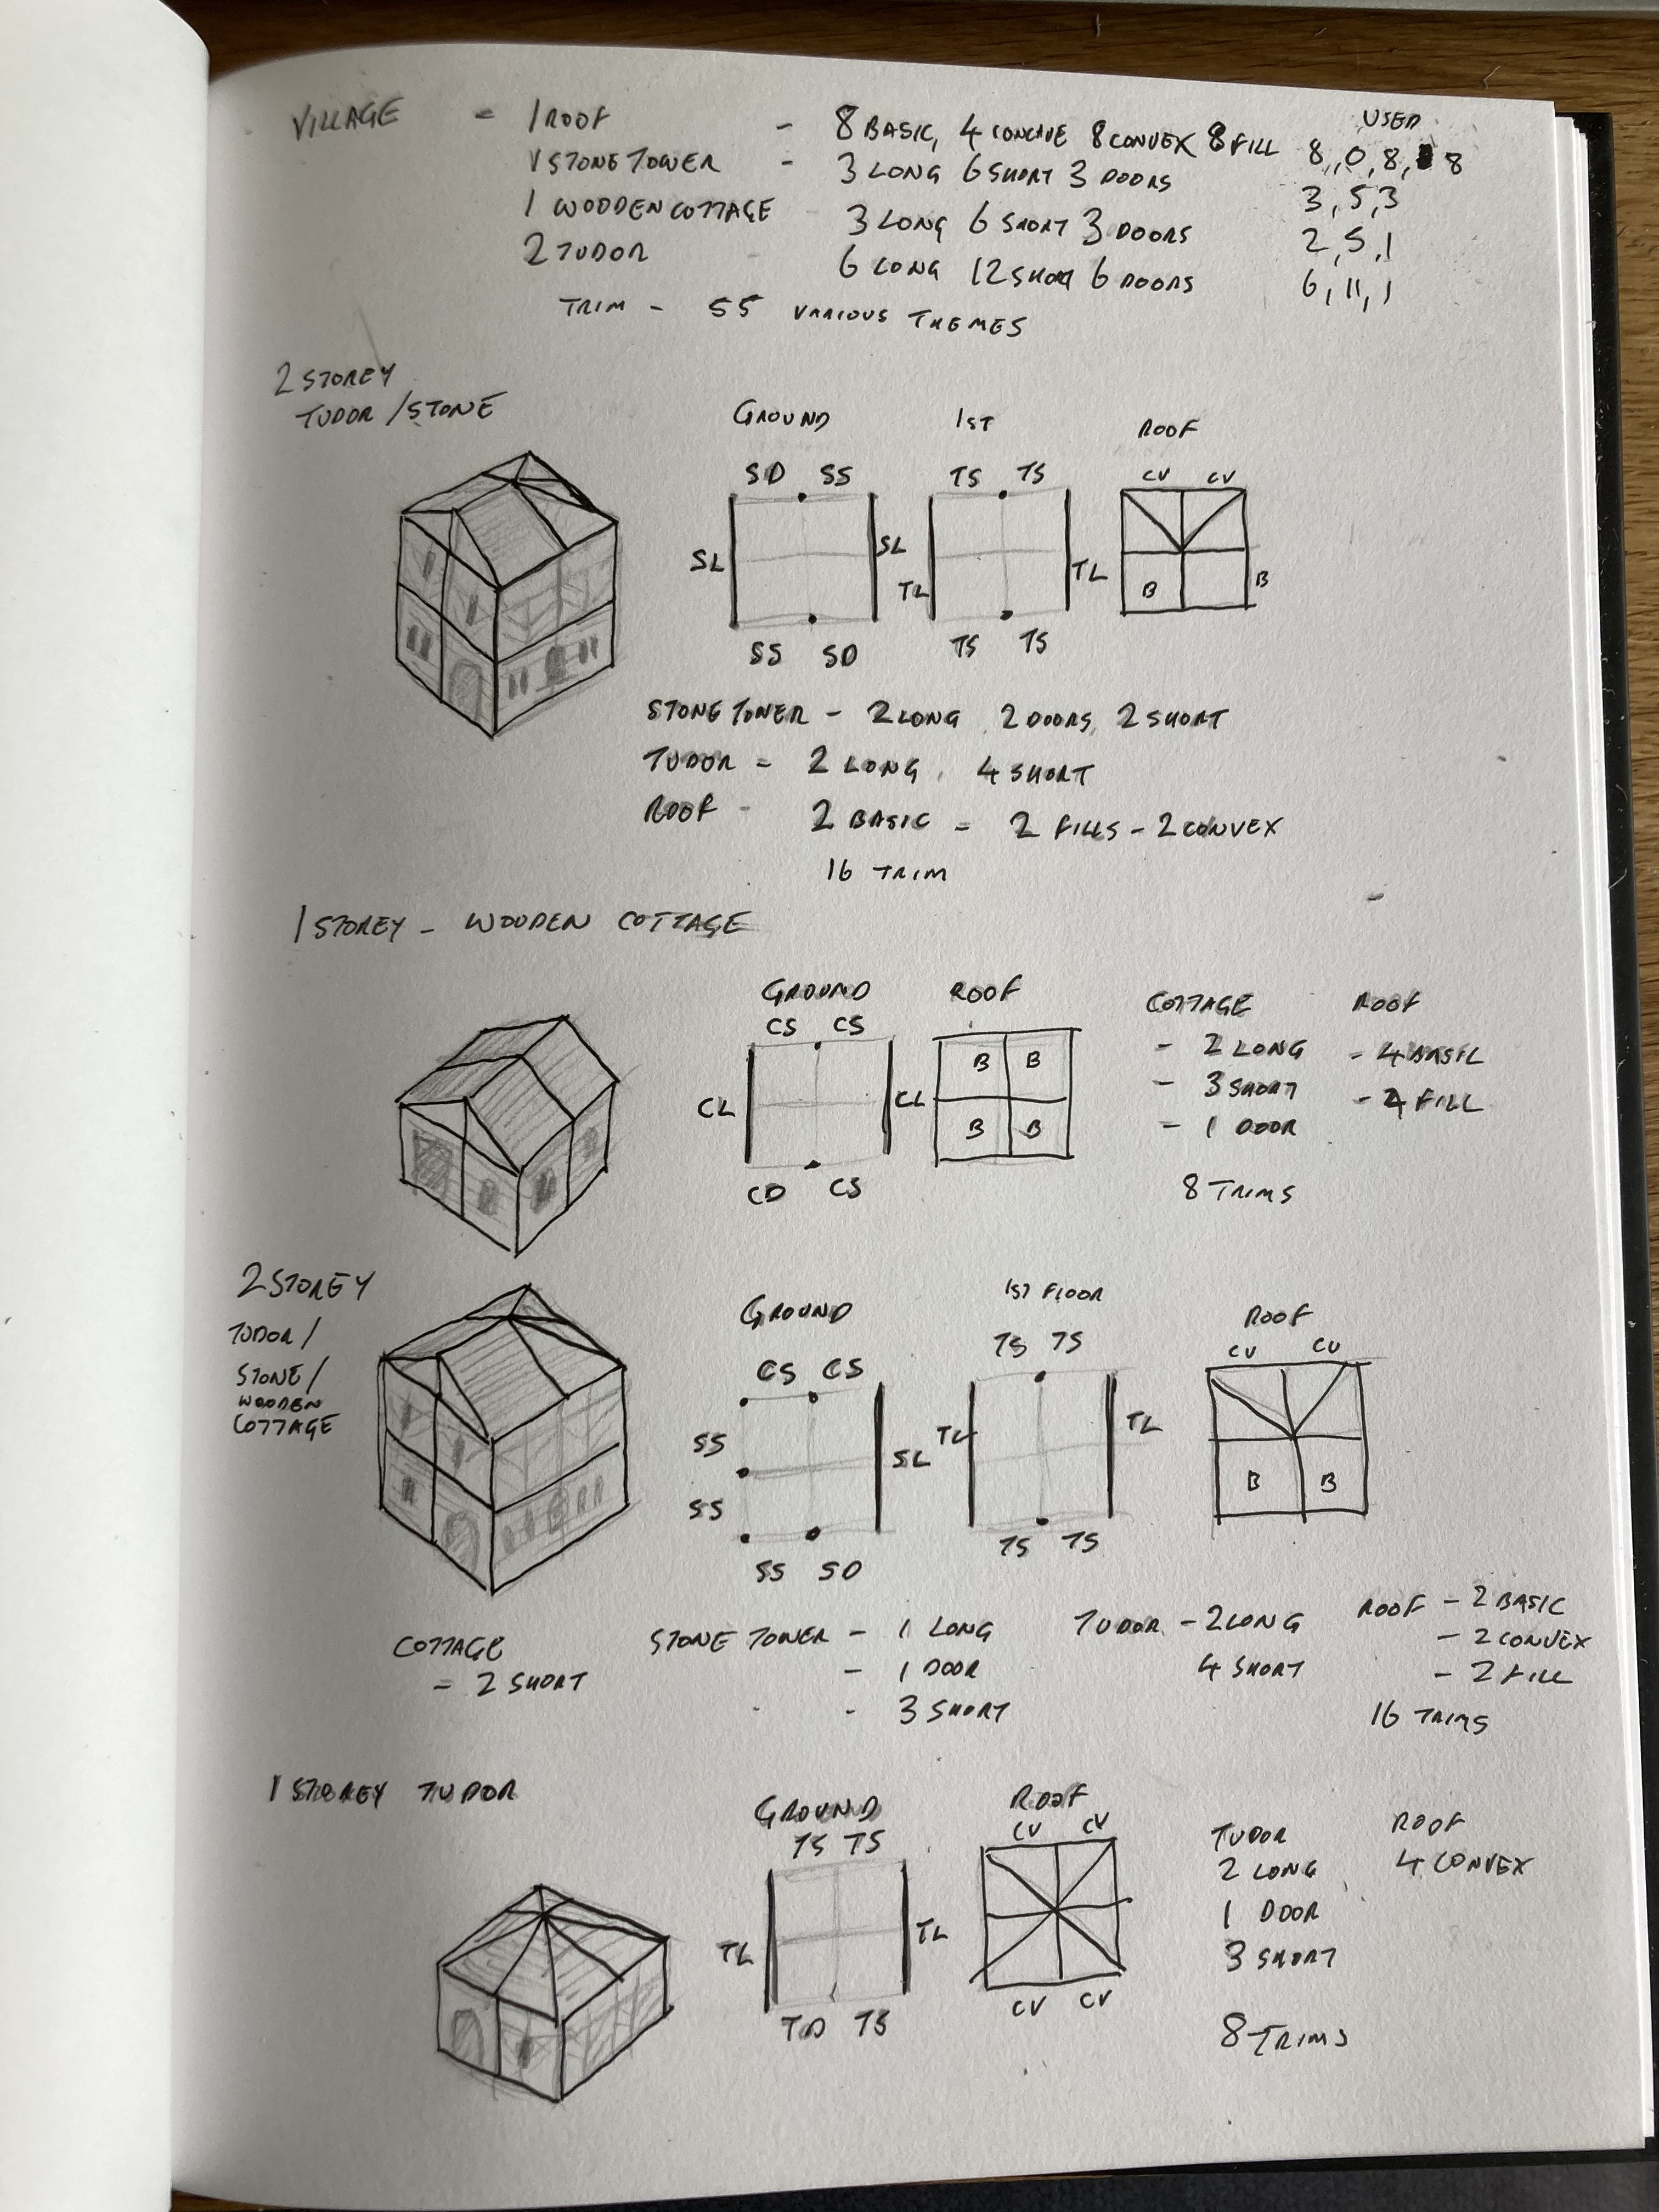 VILLAGE = 1 ROOF - 8 BASIC, 4 CONCAVE 8 CONVEX 8 FILL
USED
8, 0, 8, 8
1 STONE TOWER - 3 LONG 6 SHORT 3 DOORS 3, 5, 3
1 WOODEN COTTAGE 3 LONG 6 SHORT 3 DOORS 2, 5, 1
2 TUDOR - 6 LONG 12 SHORT 6 DOORS 6, 11, 1
TRIM - 55 VARIOUS THEMES
2 STOREY
TUDOR / STONE
GROUND 1ST ROOF
SD SS TS TS CV CV
SL SL TL TL B B
SS SD TS TS
STONE TOWER - 2 LONG 2 DOORS, 2 SHORT
TUDOR - 2 LONG, 4 SHORT
ROOF - 2 BASIC - 2 FILLS - 2 CONVEX
16 TRIM
1 STOREY - WOODEN COTTAGE
GROUND ROOF COTTAGE ROOF
CS CS B B - 2 LONG - 4 BASIC
CL CL - 3 SHORT - 4 FILL
B B - 1 DOOR
CD CS
8 TRIMS
2 STOREY
TUDOR /
STONE /
WOODEN
COTTAGE
GROUND 1ST FLOOR ROOF
CS CS TS TS CV CV
SS SL TL TL
SS B B
SS SD TS TS
COTTAGE
= 2 SHORT
STONE TOWER - 1 LONG
- 1 DOOR
- 3 SHORT
TUDOR - 2 LONG
4 SHORT
ROOF - 2 BASIC
- 2 CONVEX
- 2 FILL
16 TRIMS
1 STOREY TUDOR
GROUND ROOF
TS TS CV CV
TL TL
TD TS CV CV
TUDOR
2 LONG
1 DOOR
3 SHORT
8 TRIMS
ROOF
4 CONVEX